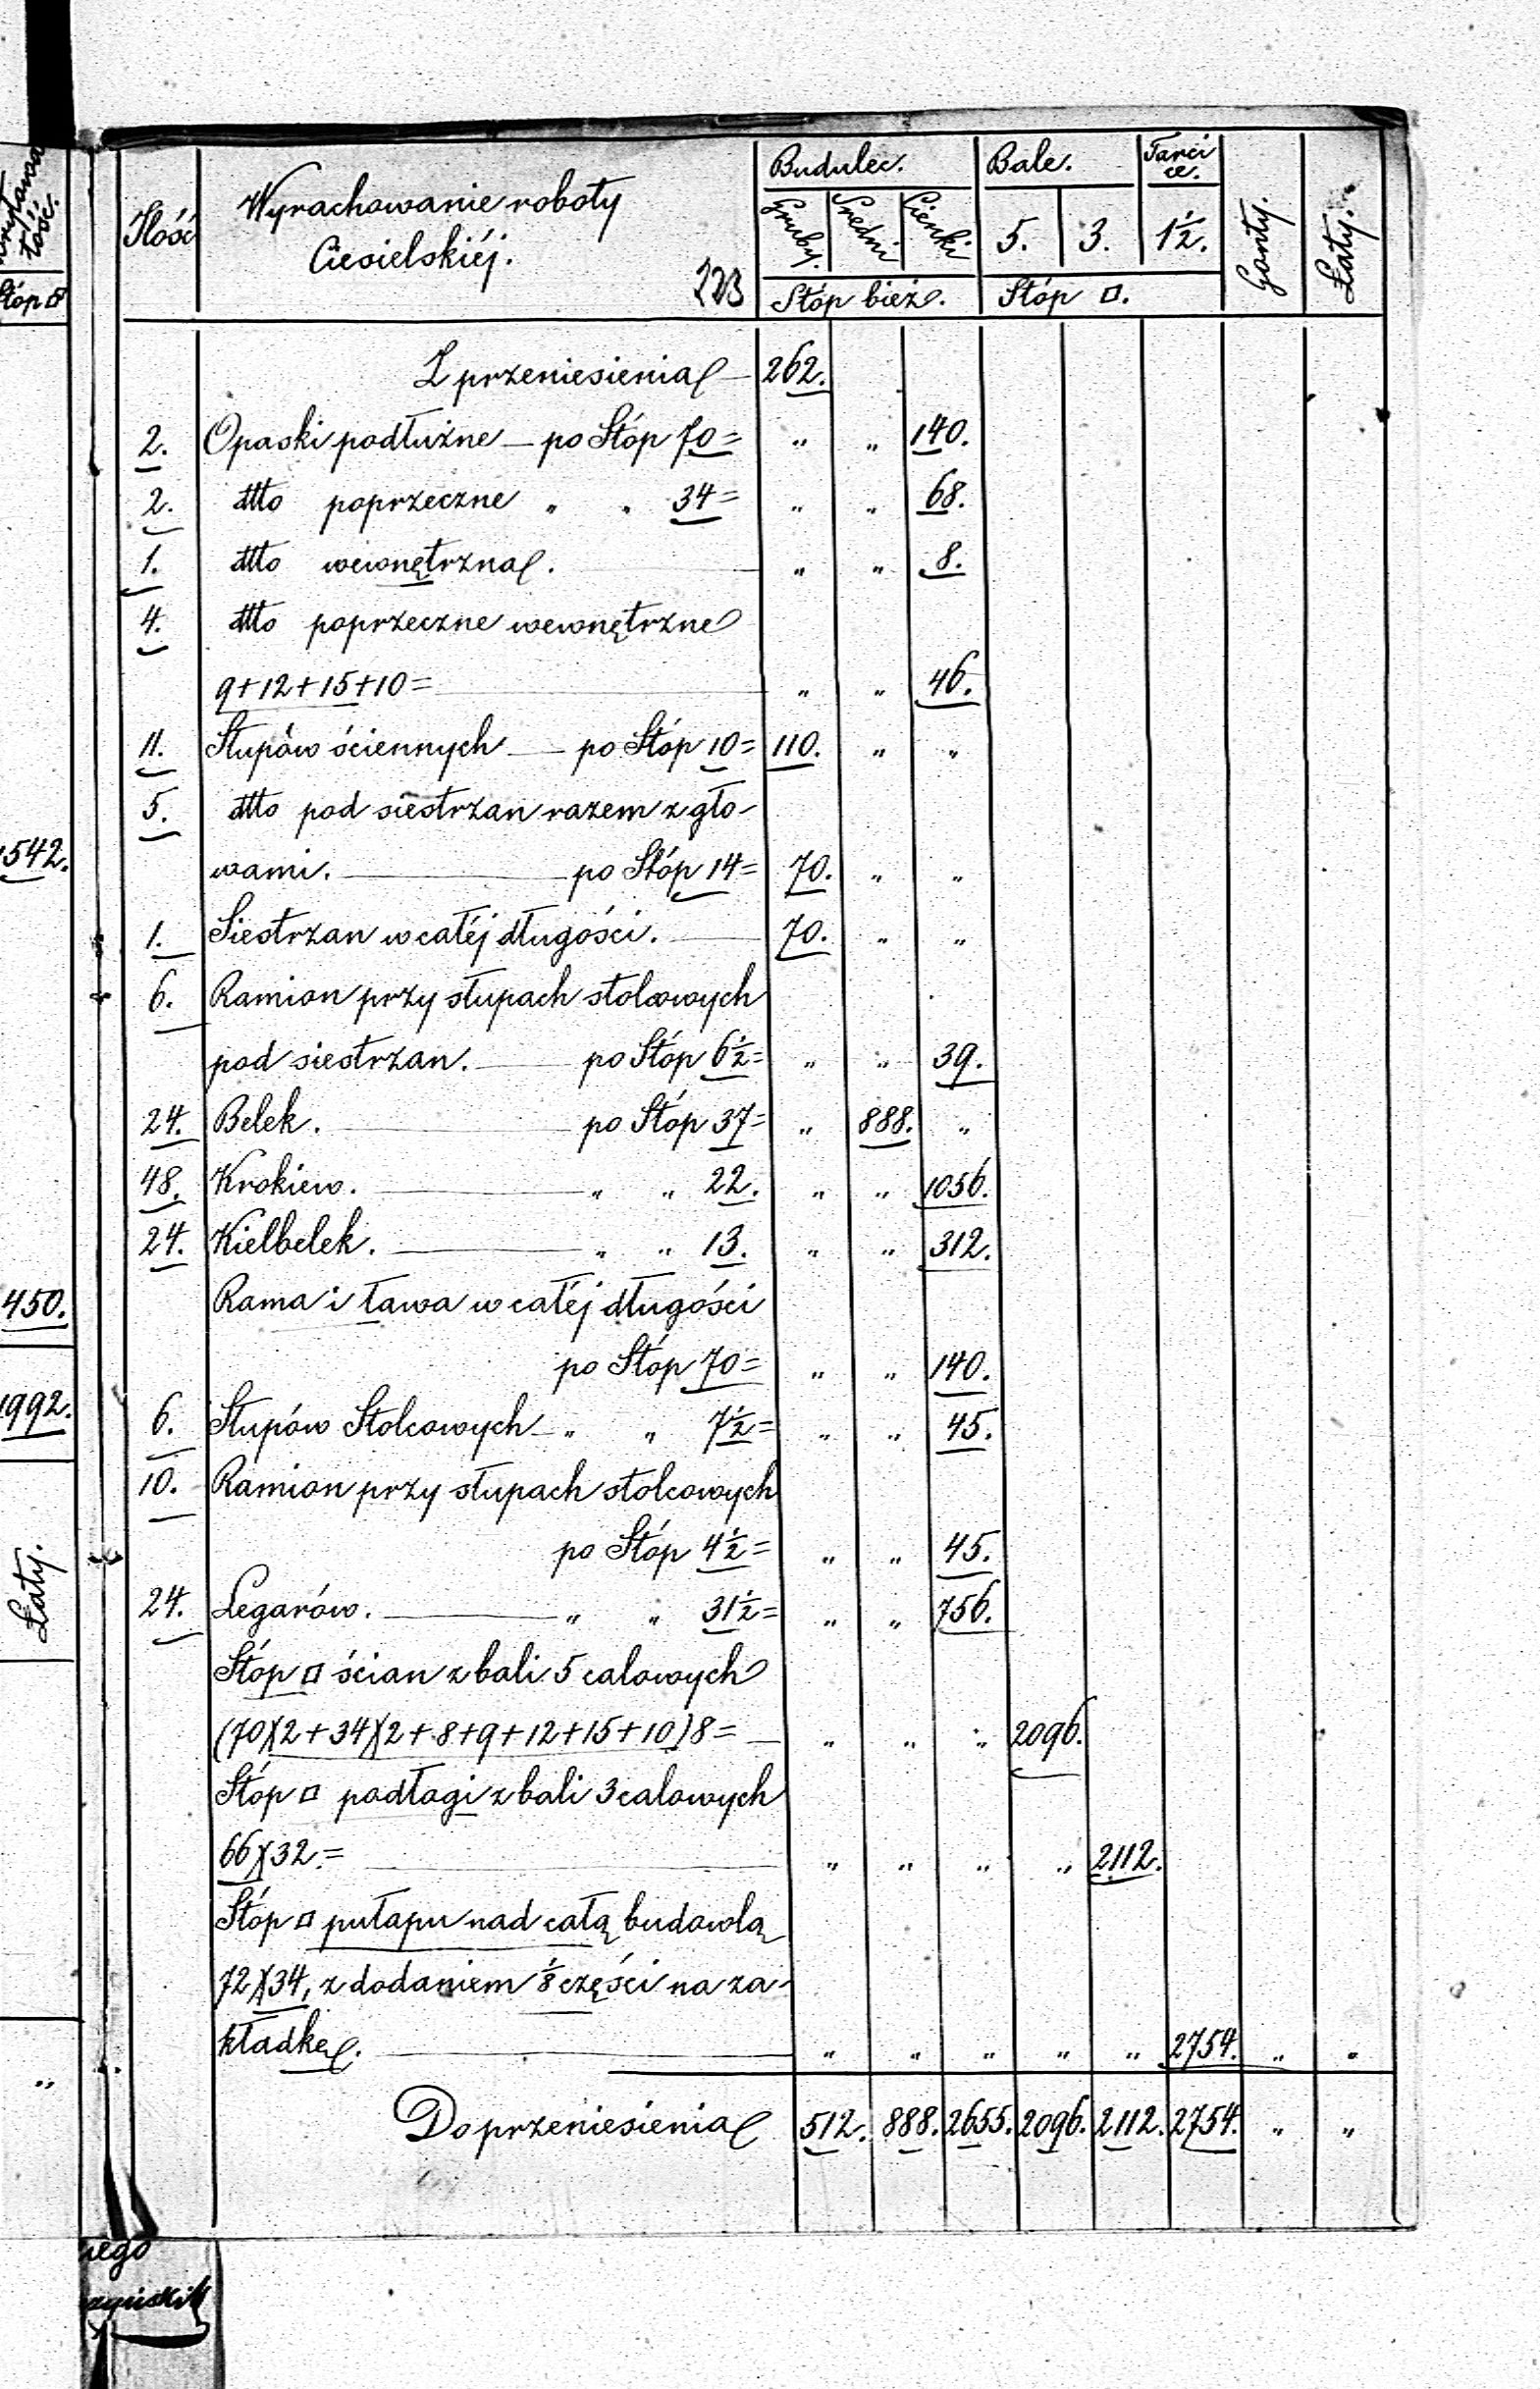 Krytowa
łość.
Stóp □
1542.
450.
1992.
Łaty.
„
Ilość
Wyrachowanie roboty
Ciesielskiéj.
223
Budulec.
Gruby. Sredni Cienki
Stóp bież.
Bale.
5. 3.
Tarci
ce.
1½.
Stóp □.
Gonty.
Łaty.
Z przeniesienia 262.
2. Opaski podłużne — po Stóp 70 = „ „ 140.
2. dtto poprzeczne „ „ 34 = „ „ 68.
1. dtto wewnętrzna. „ „ 8.
4. dtto poprzeczne wewnętrzne
9+12+15+10 = „ „ 46.
11. Słupów ściennych — po Stóp 10 = 110. „ „
5. dtto pod siestrzan razem z gło-
wami. — po Stóp 14 = 70. „ „
1. Siestrzan w całéj długości. — 70. „ „
6. Ramion przy słupach stolcowych
pod siestrzan. — po Stóp 6½ = „ „ 39.
24. Belek. — po Stóp 37 = „ 888. „
48. Krokiew. — „ „ 22. „ „ 1056.
24. Kielbelek. — „ „ 13. „ „ 312.
Rama i ława w całéj długości
po Stóp 70 = „ „ 140.
6. Słupów Stolcowych — „ „ 7½ = „ „ 45.
10. Ramion przy słupach stolcowych
po Stóp 4½ = „ „ 45.
24. Legarów. — „ „ 31½ = „ „ 756.
Stóp □ ścian z bali 5 calowych
(70)(2+34)(2+8+9+12+15+10)8 = — „ „ „ 2096.
Stóp □ podłogi z bali 3 calowych
66)(32 = — „ „ „ „ 2112.
Stóp □ pułapu nad całą budowlą
72)(34, z dodaniem ⅛ części na za-
kładkę. — „ „ „ „ „ 2754. „ „
Do przeniesienia 512. 888. 2655. 2096. 2112. 2754. „ „
nego